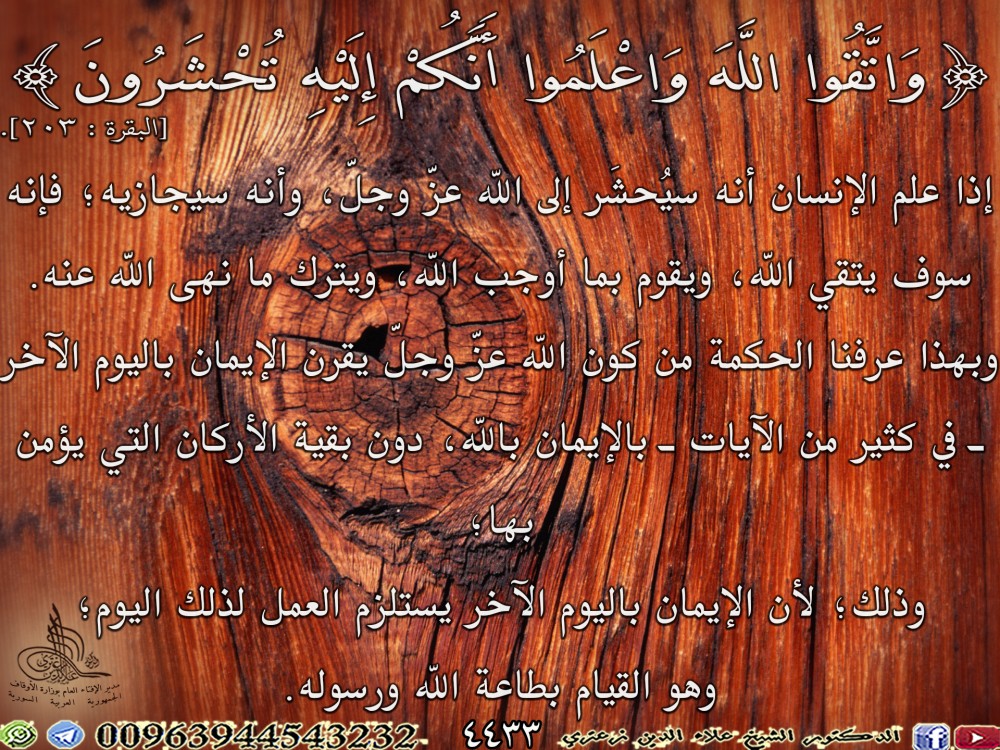 ﴿ وَاتَّقُوا اللَّهَ وَاعْلَمُوا أَنَّكُمْ إِلَيْهِ تُحْشَرُونَ ﴾
[البقرة : ٢٠٣].
إذا علم الإنسان أنه سيُحشَر إلى الله عزّ وجلّ، وأنه سيجازيه؛ فإنه
سوف يتقي الله، ويقوم بما أوجب الله، ويترك ما نهى الله عنه.
وبهذا عرفنا الحكمة من كون الله عزّ وجلّ يقرن الإيمان باليوم الآخر
ـ في كثير من الآيات ـ بالإيمان بالله، دون بقية الأركان التي يؤمن
بها؛
وذلك؛ لأن الإيمان باليوم الآخر يستلزم العمل لذلك اليوم؛
وهو القيام بطاعة الله ورسوله.
مدير الإفتاء العام بوزارة الأوقاف
الجمهورية العربية السورية
الدكتور الشيخ علاء الدين زعتري ٤٤٣٣ 00963944543232